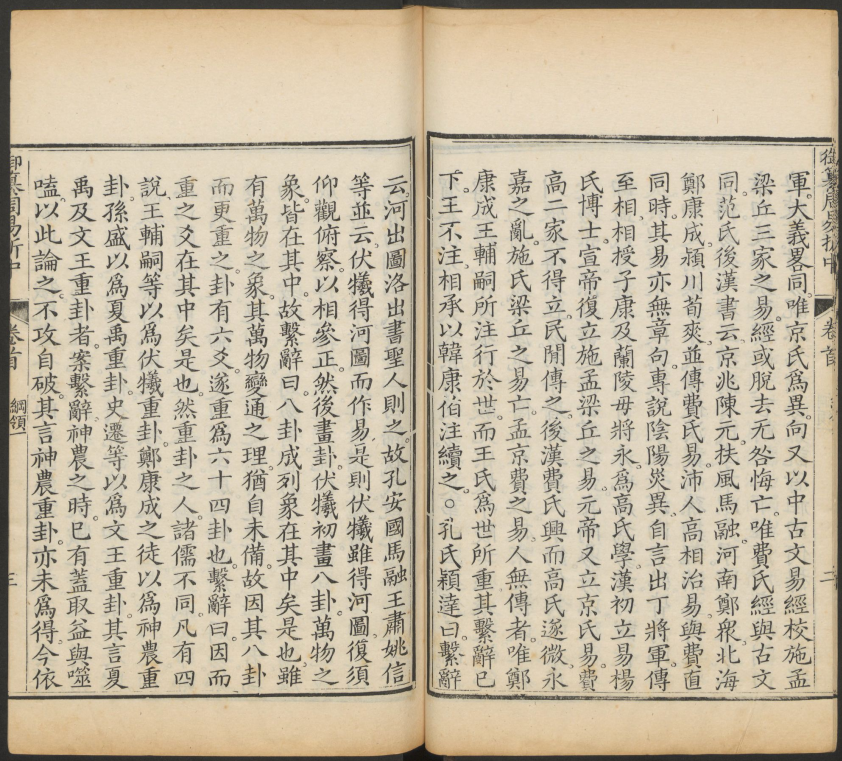 軍。大義畧同。唯京氏爲異。向又以中古文易經校施孟
梁丘三家之易。經或脫去无咎悔亡。唯費氏經與古文
同。范氏後漢書云。京兆陳元。扶風馬融。河南鄭衆。北海
鄭康成。潁川荀爽。並傳費氏易。沛人高相治易。與費直
同時。其易亦無章句。專說陰陽災異。自言出丁將軍。傳
至相。相授子康及蘭陵毋將永。爲高氏學。漢初立易楊
氏博士。宣帝復立施孟梁丘之易。元帝又立京氏易。費
高二家不得立。民間傳之。後漢費氏興而高氏遂微。永
嘉之亂。施氏梁丘之易亡。孟京費之易。人無傳者。唯鄭
康成王輔嗣所注行於世。而王氏爲世所重。其繫辭已
下。王不注。相承以韓康伯注續之。○孔氏穎達曰。繫辭
云。河出圖。洛出書。聖人則之。故孔安國馬融王肅姚信
等並云。伏犧得河圖而作易。是則伏犧雖得河圖。復須
仰觀俯察。以相參正。然後畫卦。伏犧初畫八卦。萬物之
象。皆在其中。故繫辭曰。八卦成列。象在其中矣是也。雖
有萬物之象。其萬物變通之理。猶自未備。故因其八卦
而更重之。卦有六爻。遂重爲六十四卦也。繫辭曰。因而
重之。爻在其中矣是也。然重卦之人。諸儒不同。凡有四
說。王輔嗣等以爲伏犧重卦。鄭康成之徒以爲神農重
卦。孫盛以爲夏禹重卦。史遷等以爲文王重卦。其言夏
禹及文王重卦者。案繫辭神農之時。已有蓋取益與噬
嗑。以此論之。不攻自破。其言神農重卦。亦未爲得。今依
御纂周易折中 卷首 綱領一 三